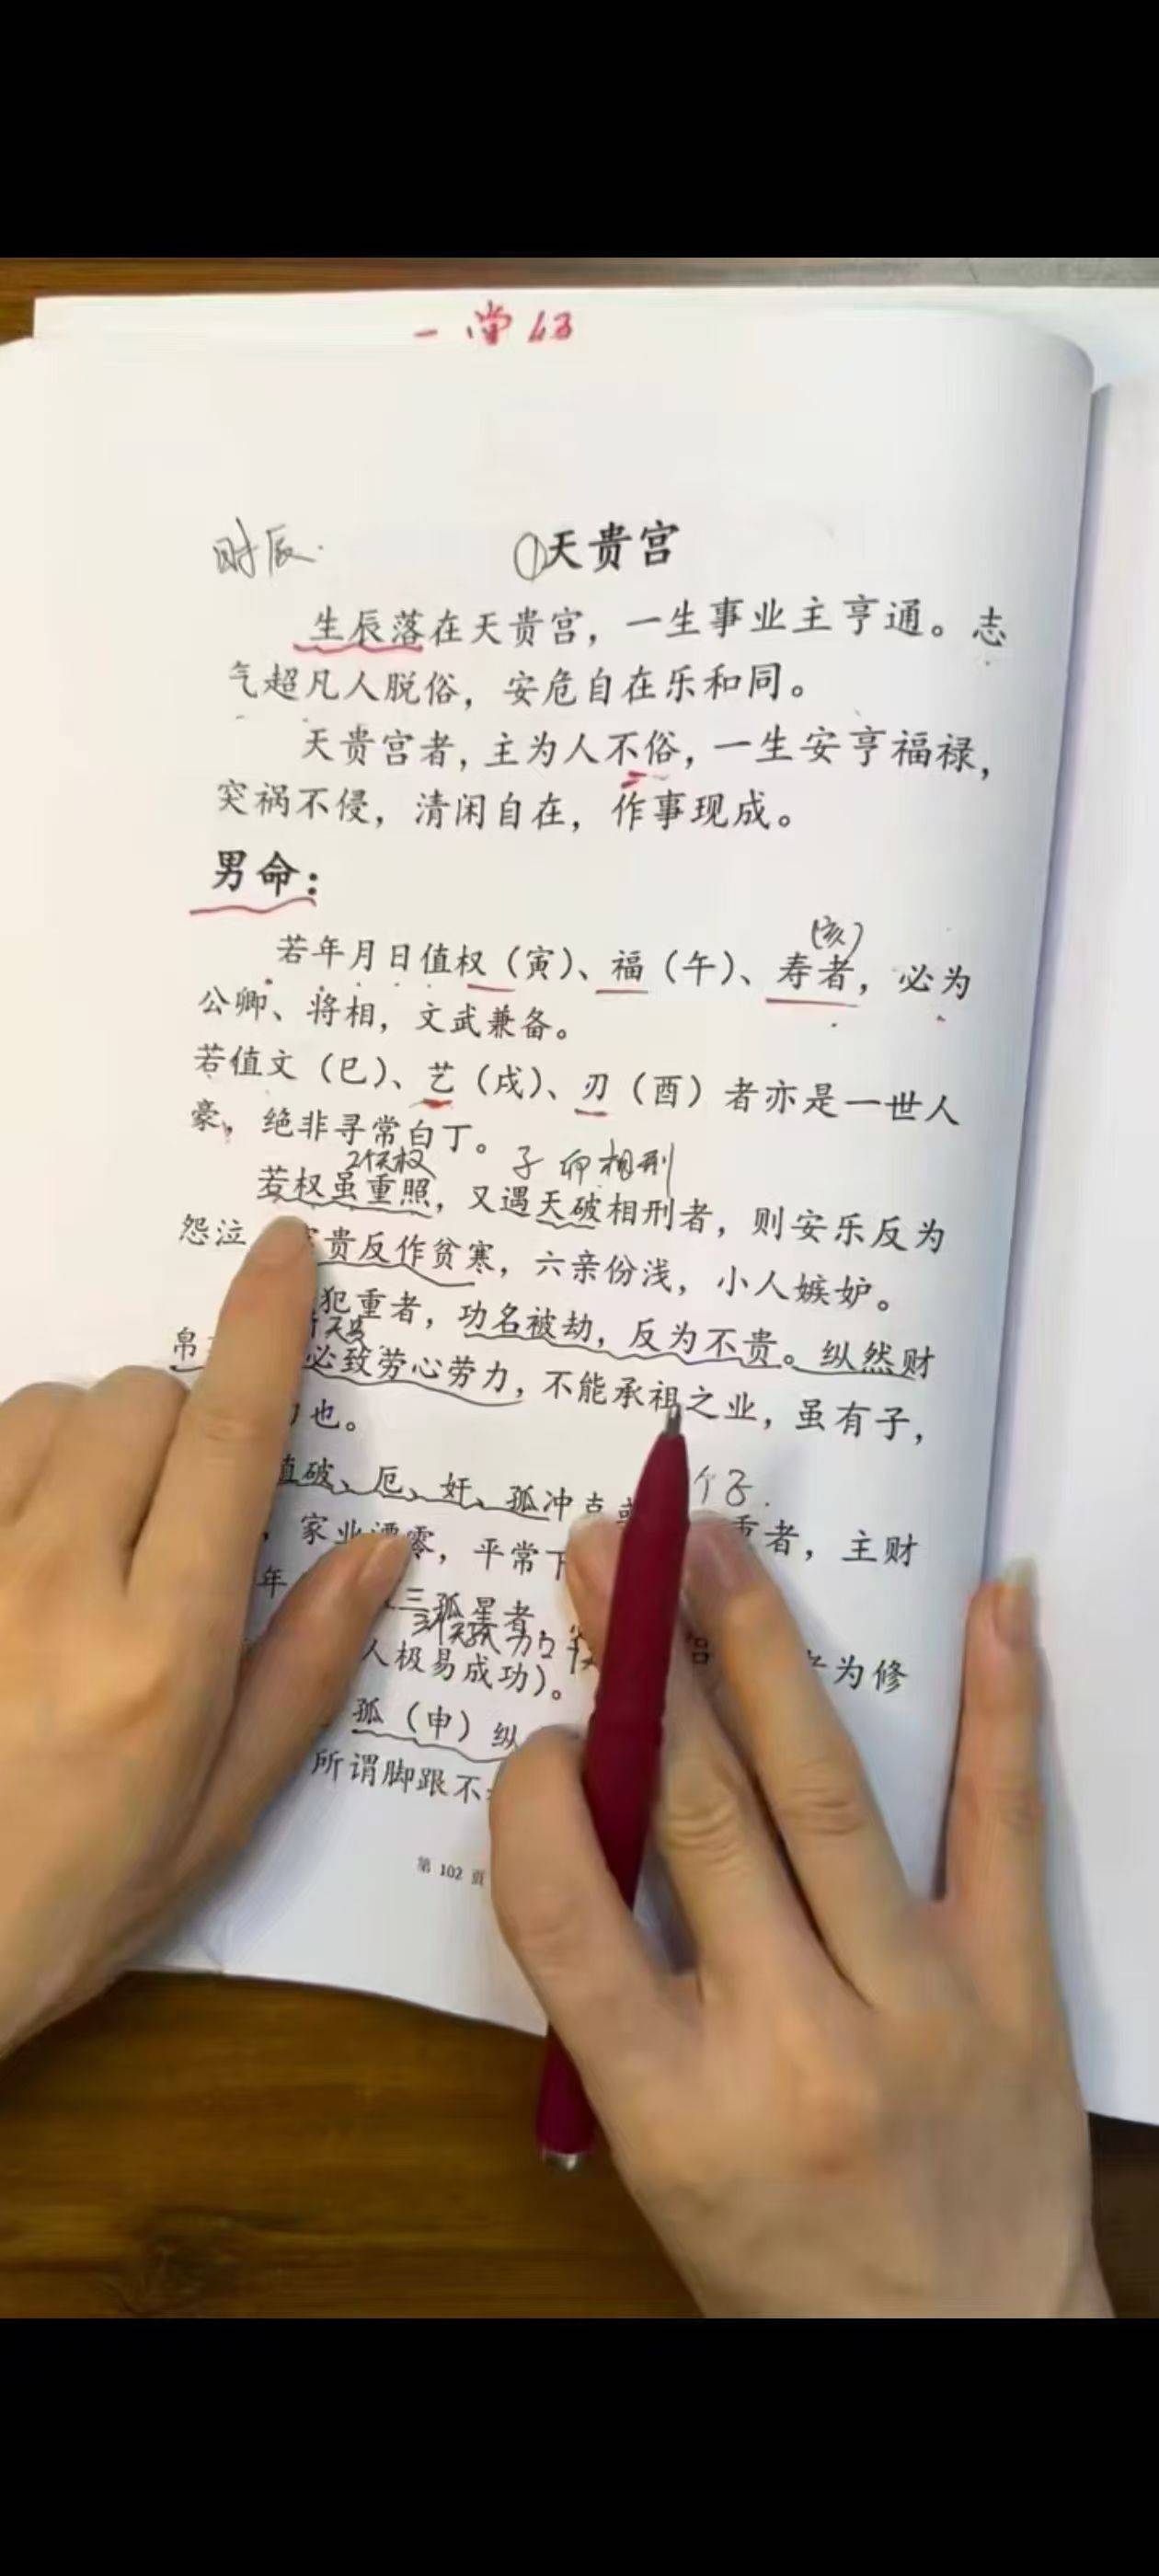 一堂
时辰
①天贵宫
生辰落在天贵宫，一生事业主亨通。志
气超凡人脱俗，安危自在乐和同。
天贵宫者，主为人不俗，一生安亨福禄，
突祸不侵，清闲自在，作事现成。
男命：
(亥)
若年月日值权（寅）、福（午）、寿者，必为
公卿、将相，文武兼备。
若值文（巳）、艺（戌）、刃（酉）者亦是一世人
豪，绝非寻常白丁。
2个天权 子卯相刑
若权虽重照，又遇天破相刑者，则安乐反为
怨泣 贵反作贫寒，六亲份浅，小人嫉妒。
犯重者，功名被劫，反为不贵。纵然财
帛 必致劳心劳力，不能承祖之业，虽有子，
也。
个子.
值破、厄、奸、孤冲克 重者，主财
，家业漂零，平常下
年 三孤星者，
三个天孤
为修
人极易成功）。
孤（申）纵
所谓脚跟不
第 102 页